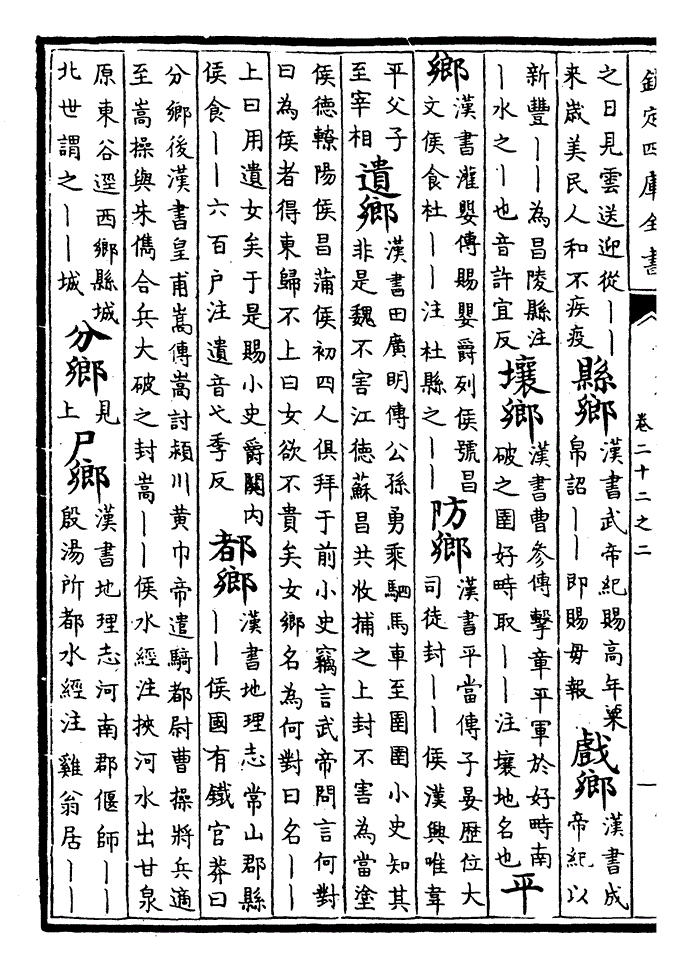 欽定四庫全書
卷二十二之二
之日見雲送迎從丨丨
来嵗美民人和不疾疫
縣鄉
漢書武帝紀賜高年粟
帛詔丨丨即賜毋報
戯鄉
漢書成
帝紀以
新豐丨丨為昌陵縣注
丨水之丨也音許宜反
壤鄉
漢書曹參傳擊章平軍於好畤南
破之圍好畤取丨丨注壤地名也
平
鄉
漢書灌嬰傳賜嬰爵列侯號昌
文侯食杜丨丨注杜縣之丨丨
防鄉
漢書平當傳子晏歴位大
司徒封丨丨侯漢興唯韋
平父子
至宰相
遺鄉
漢書田廣明傳公孫勇乘駟馬車至圉圉小史知其
非是魏不害江徳蘇昌共收捕之上封不害為當塗
侯徳轑陽侯昌蒲侯初四人俱拜于前小史竊言武帝問言何對
曰為侯者得東歸不上曰女欲不貴矣女鄉名為何對曰名丨丨
上曰用遺女矣于是賜小史爵關内
侯食丨丨六百户注遺音弋季反
都鄉
漢書地理志常山郡縣
丨丨侯國有鐵官莽曰
分鄉後漢書皇甫嵩傳嵩討潁川黄巾帝遣騎都尉曹操將兵適
至嵩操與朱儁合兵大破之封嵩丨丨侯水經注挾河水出甘泉
原東谷逕西鄉縣城
北世謂之丨丨城
分鄉
見
上
尸鄉
漢書地理志河南郡偃師丨丨
殷湯所都水經注雞翁居丨丨